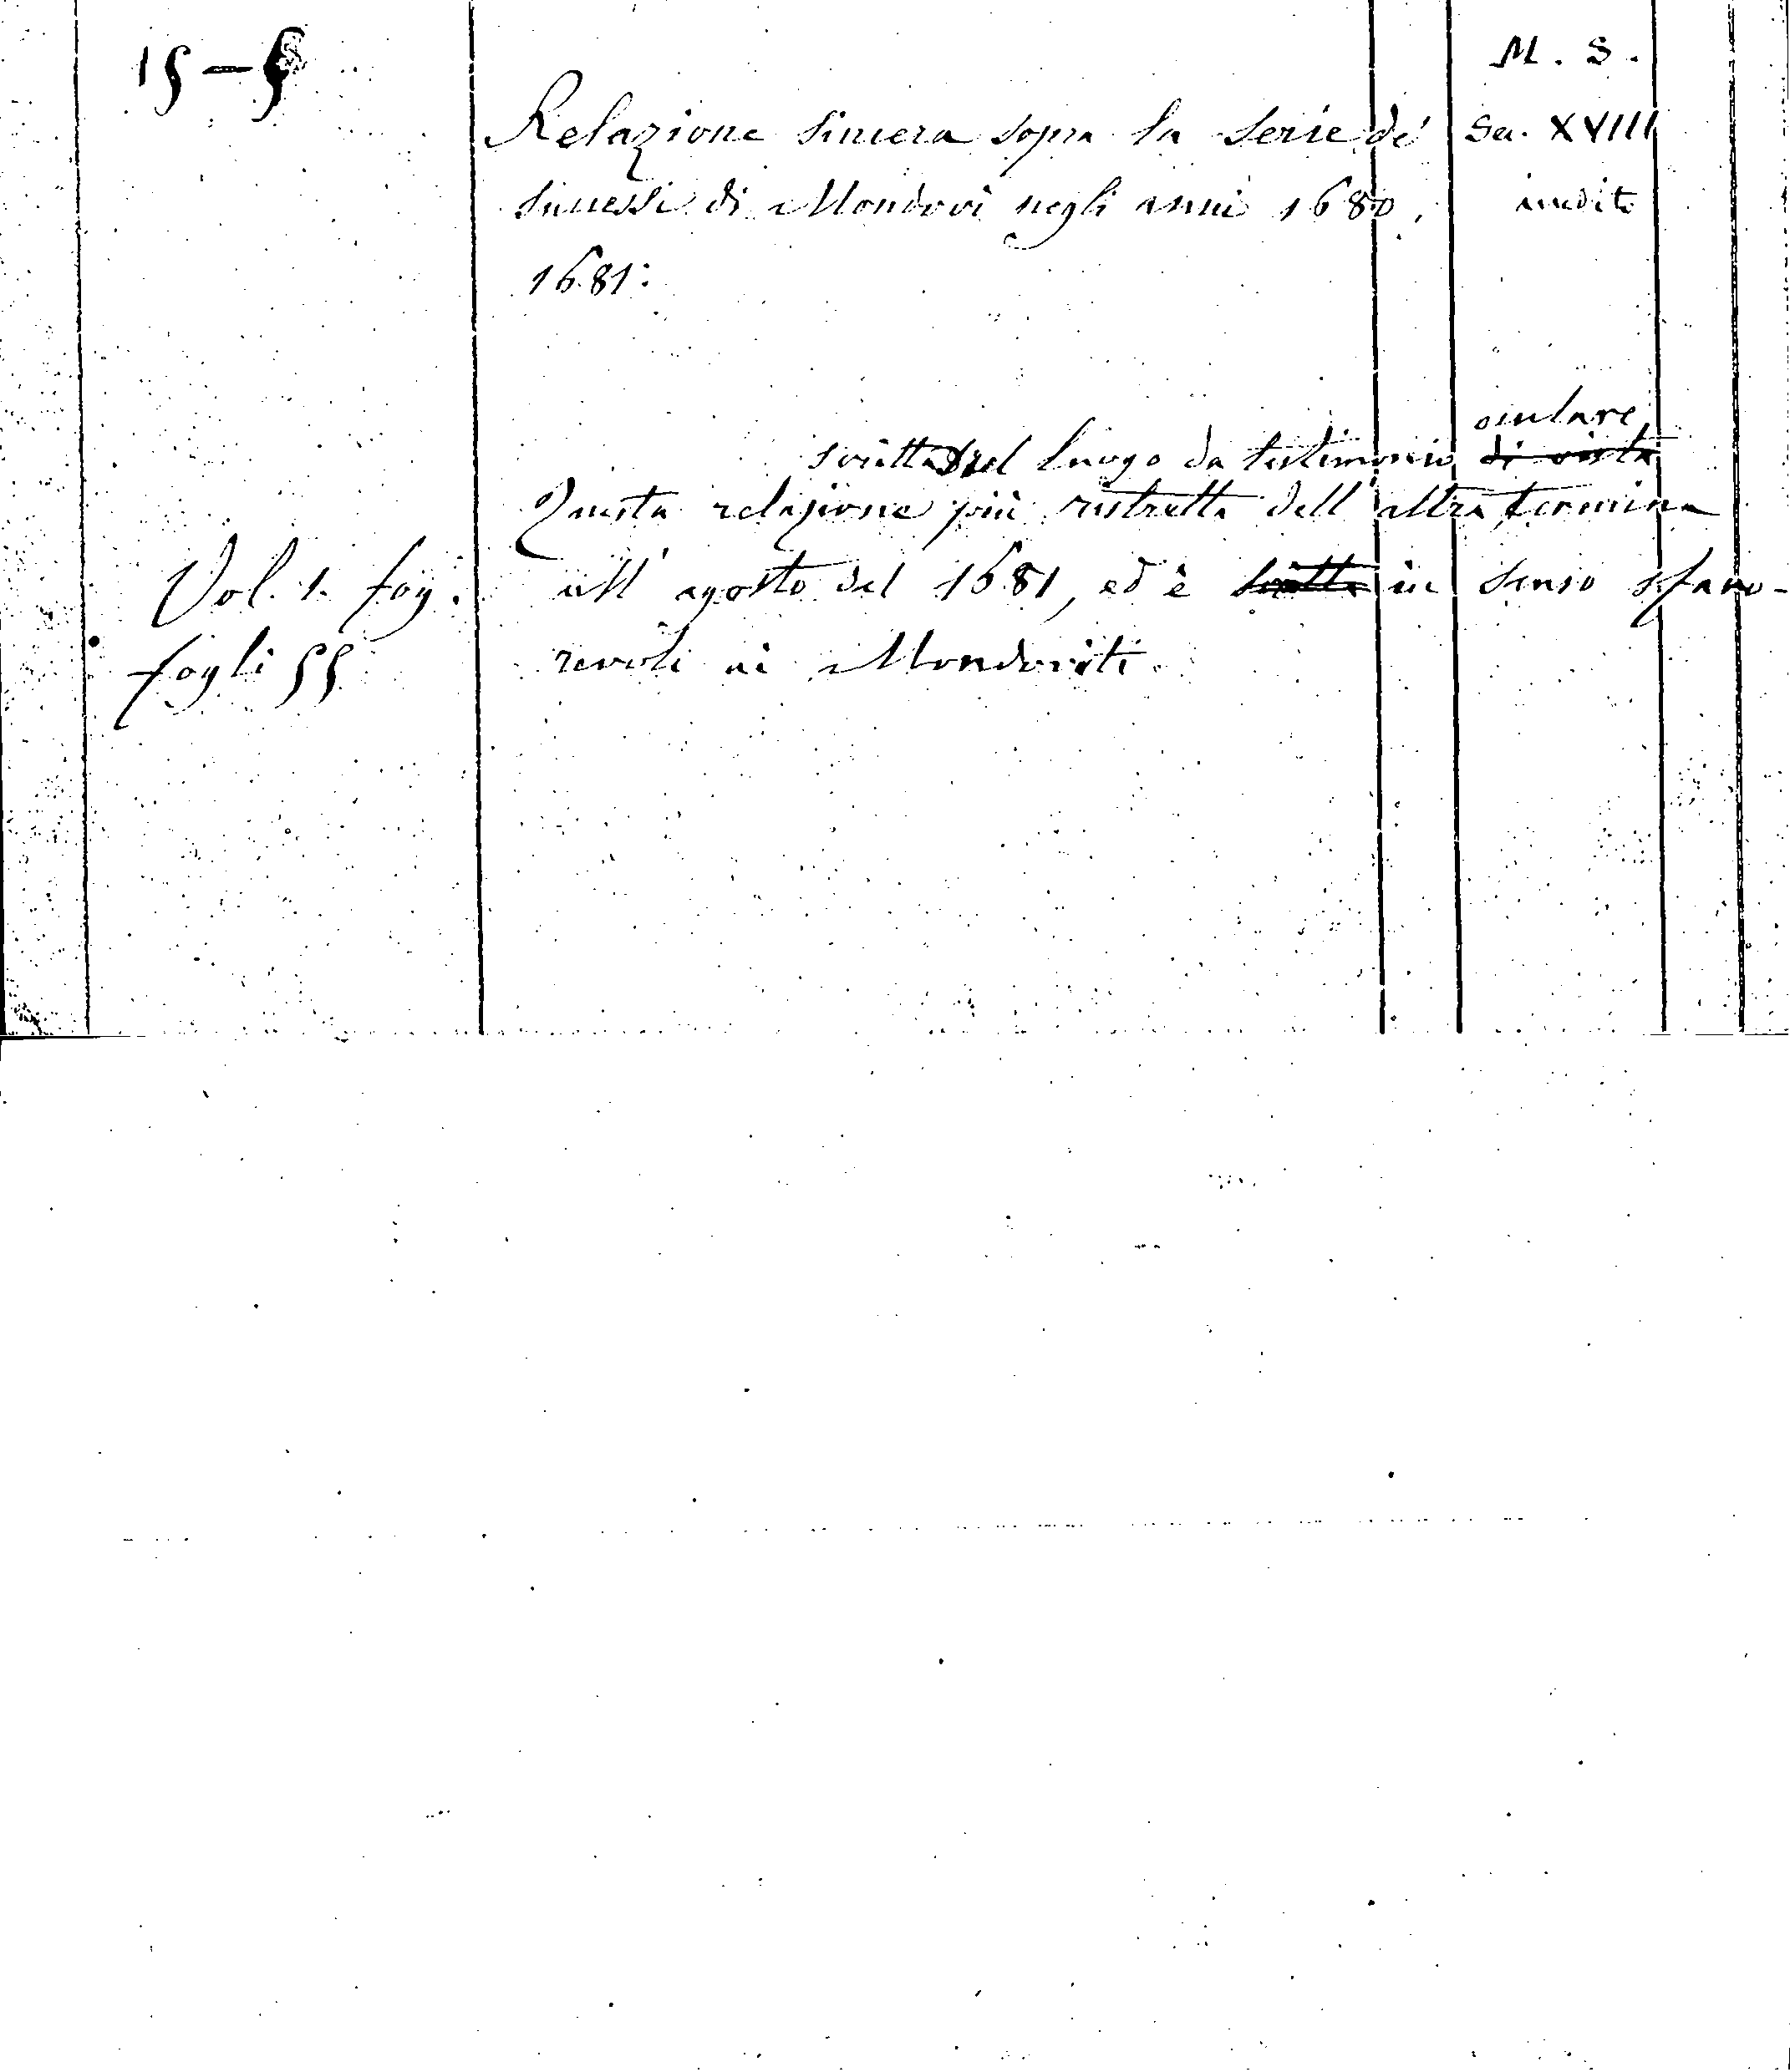 15-5
M. S.
Relazione sincera sopra la serie de'
Sec. XVIII
successi di Mondovì negli anni 1680,
inedito
1681:
oculare
scritta nel luogo da testimonio di vista
Questa relazione più ristretta dell'altra, termina
Vol. 1. fog.
all'agosto del 1681, ed è scritta in senso sfavo-
fogli 55
revole ai Mondoviti.